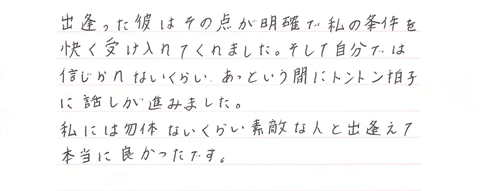 出逢った彼はその点が明確で私の条件を
快く受け入れてくれました。そして自分では
信じられないくらい、あっという間にトントン拍子
に話しが進みました。
私には勿体ないくらい素敵な人と出逢えて
本当に良かったです。